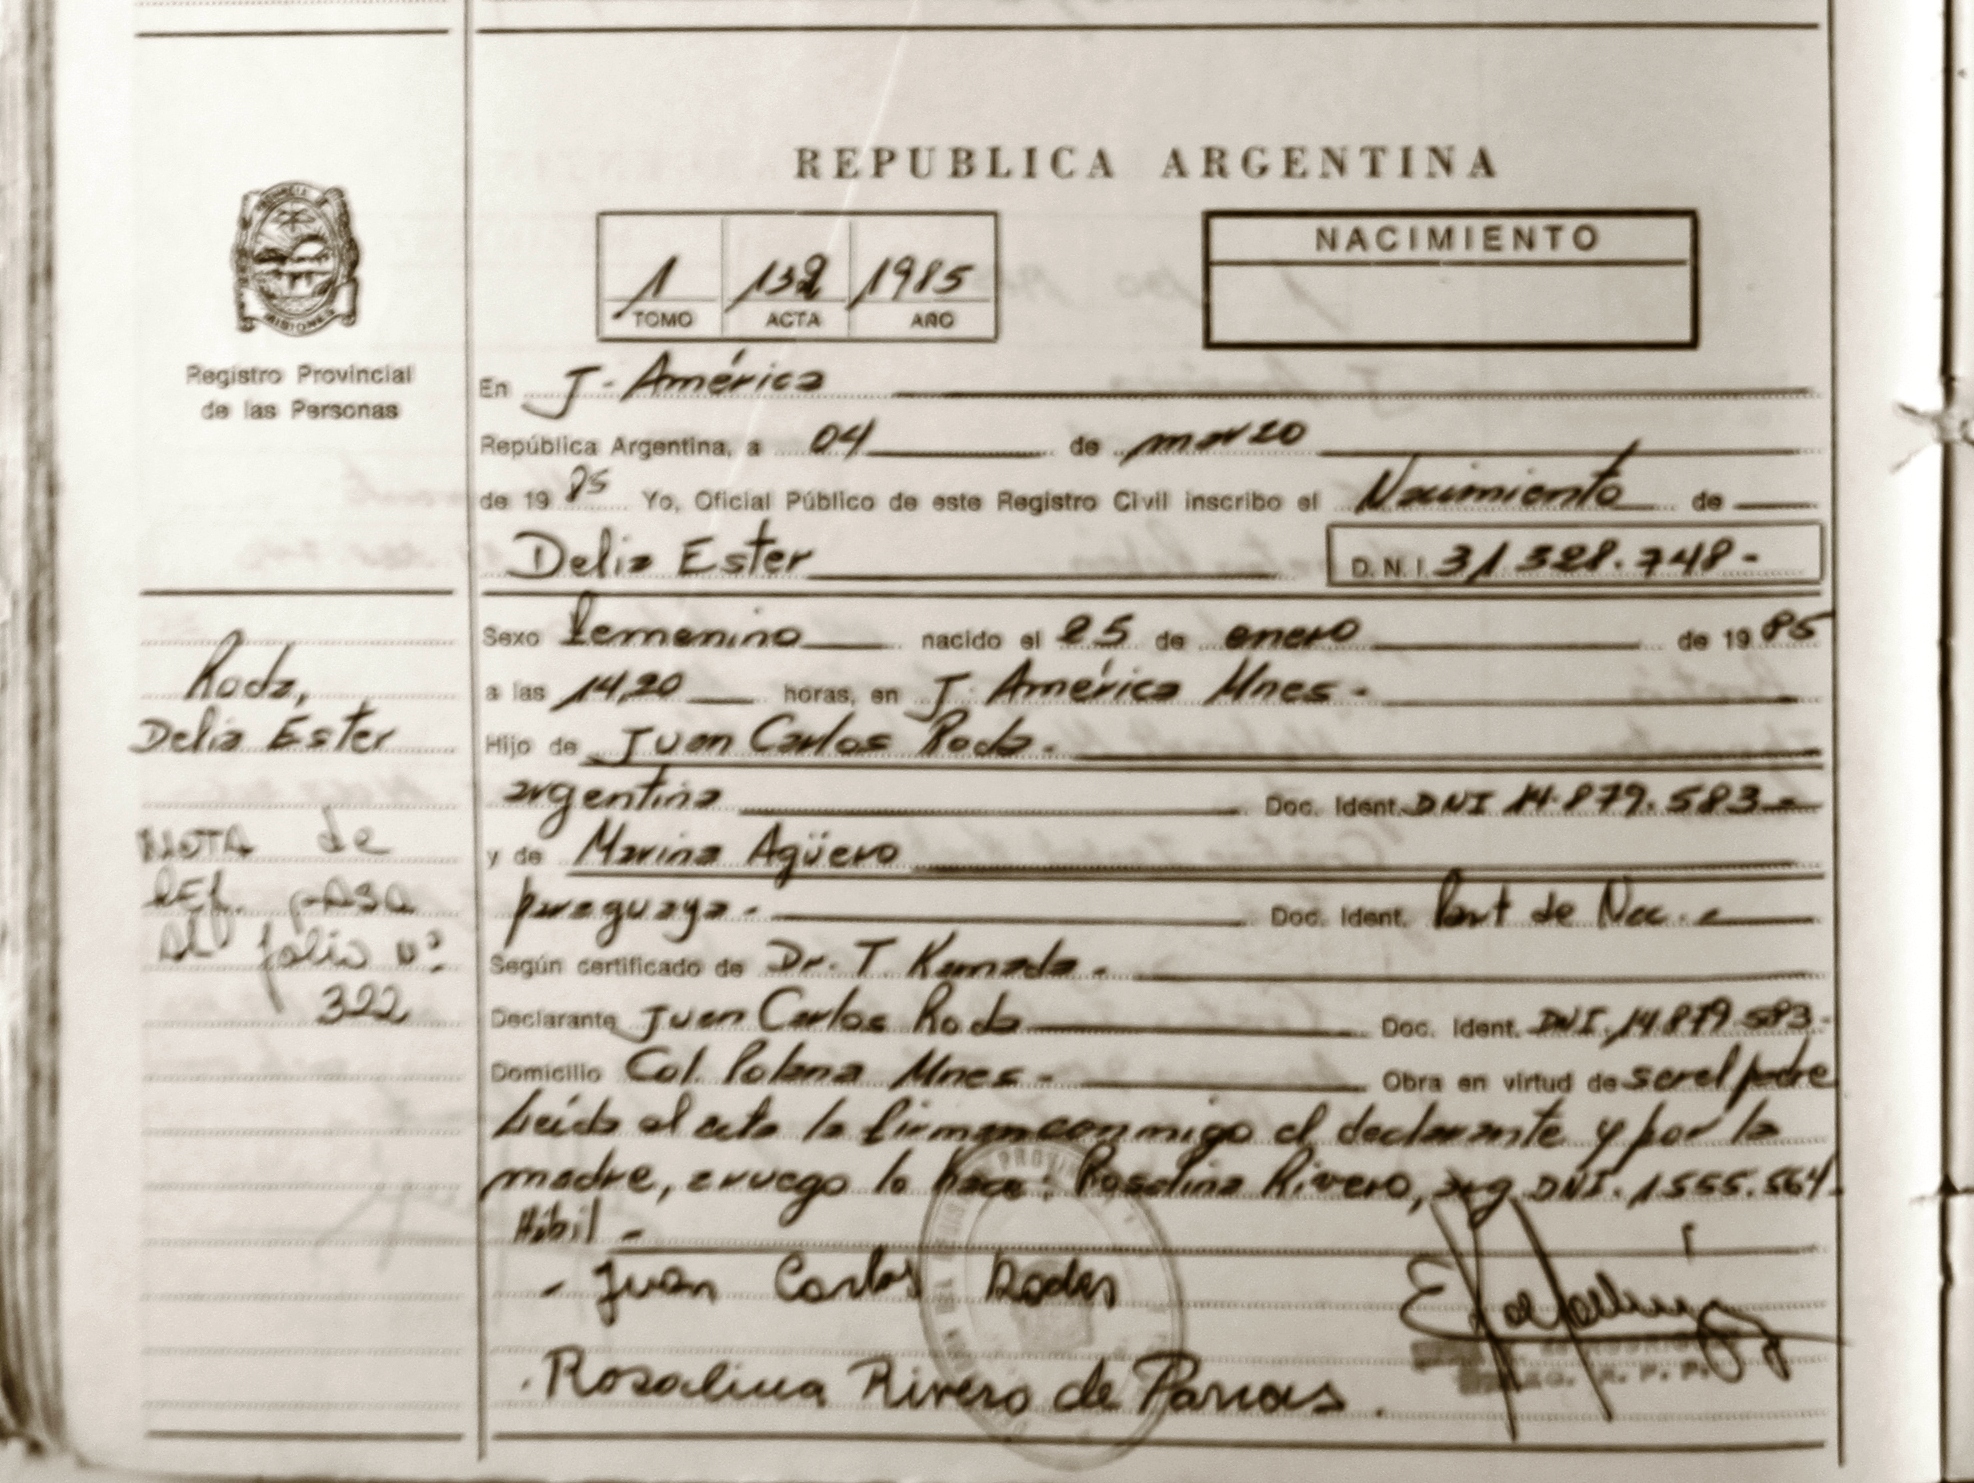 REPUBLICA ARGENTINA
MISIONES
Registro Provincial
de las Personas
1 132 1985
TOMO ACTA AÑO
NACIMIENTO
En J. América
República Argentina, a 04 de marzo
de 1985 Yo, Oficial Público de este Registro Civil inscribo el Nacimiento de
Delia Ester D.N.I. 31 328.748-
Sexo femenino nacido el 25 de enero de 1985
a las 14,20 horas, en J. América Mnes-
Hijo de Juan Carlos Roda.
argentina Doc. Ident. DNI 14.879.583-
y de Marina Agüero
paraguaya - Doc. Ident. Part de Nac.
Según certificado de Dr. T. Kamada.
Declarante Juan Carlos Roda Doc. Ident. DNI. 14879.583-
Domicilio Col. Polana Mnes- Obra en virtud de ser el padre
Leída el acta la firman conmigo el declarante y por la
madre, a ruego lo hace: Rosalina Rivero, arg DNI. 1.555.564.
Hábil -
- Juan Carlos Rodas
Rosalina Rivero de
Roda,
Delia Ester
NOTA de
REF. pASA
AL folio nº
322